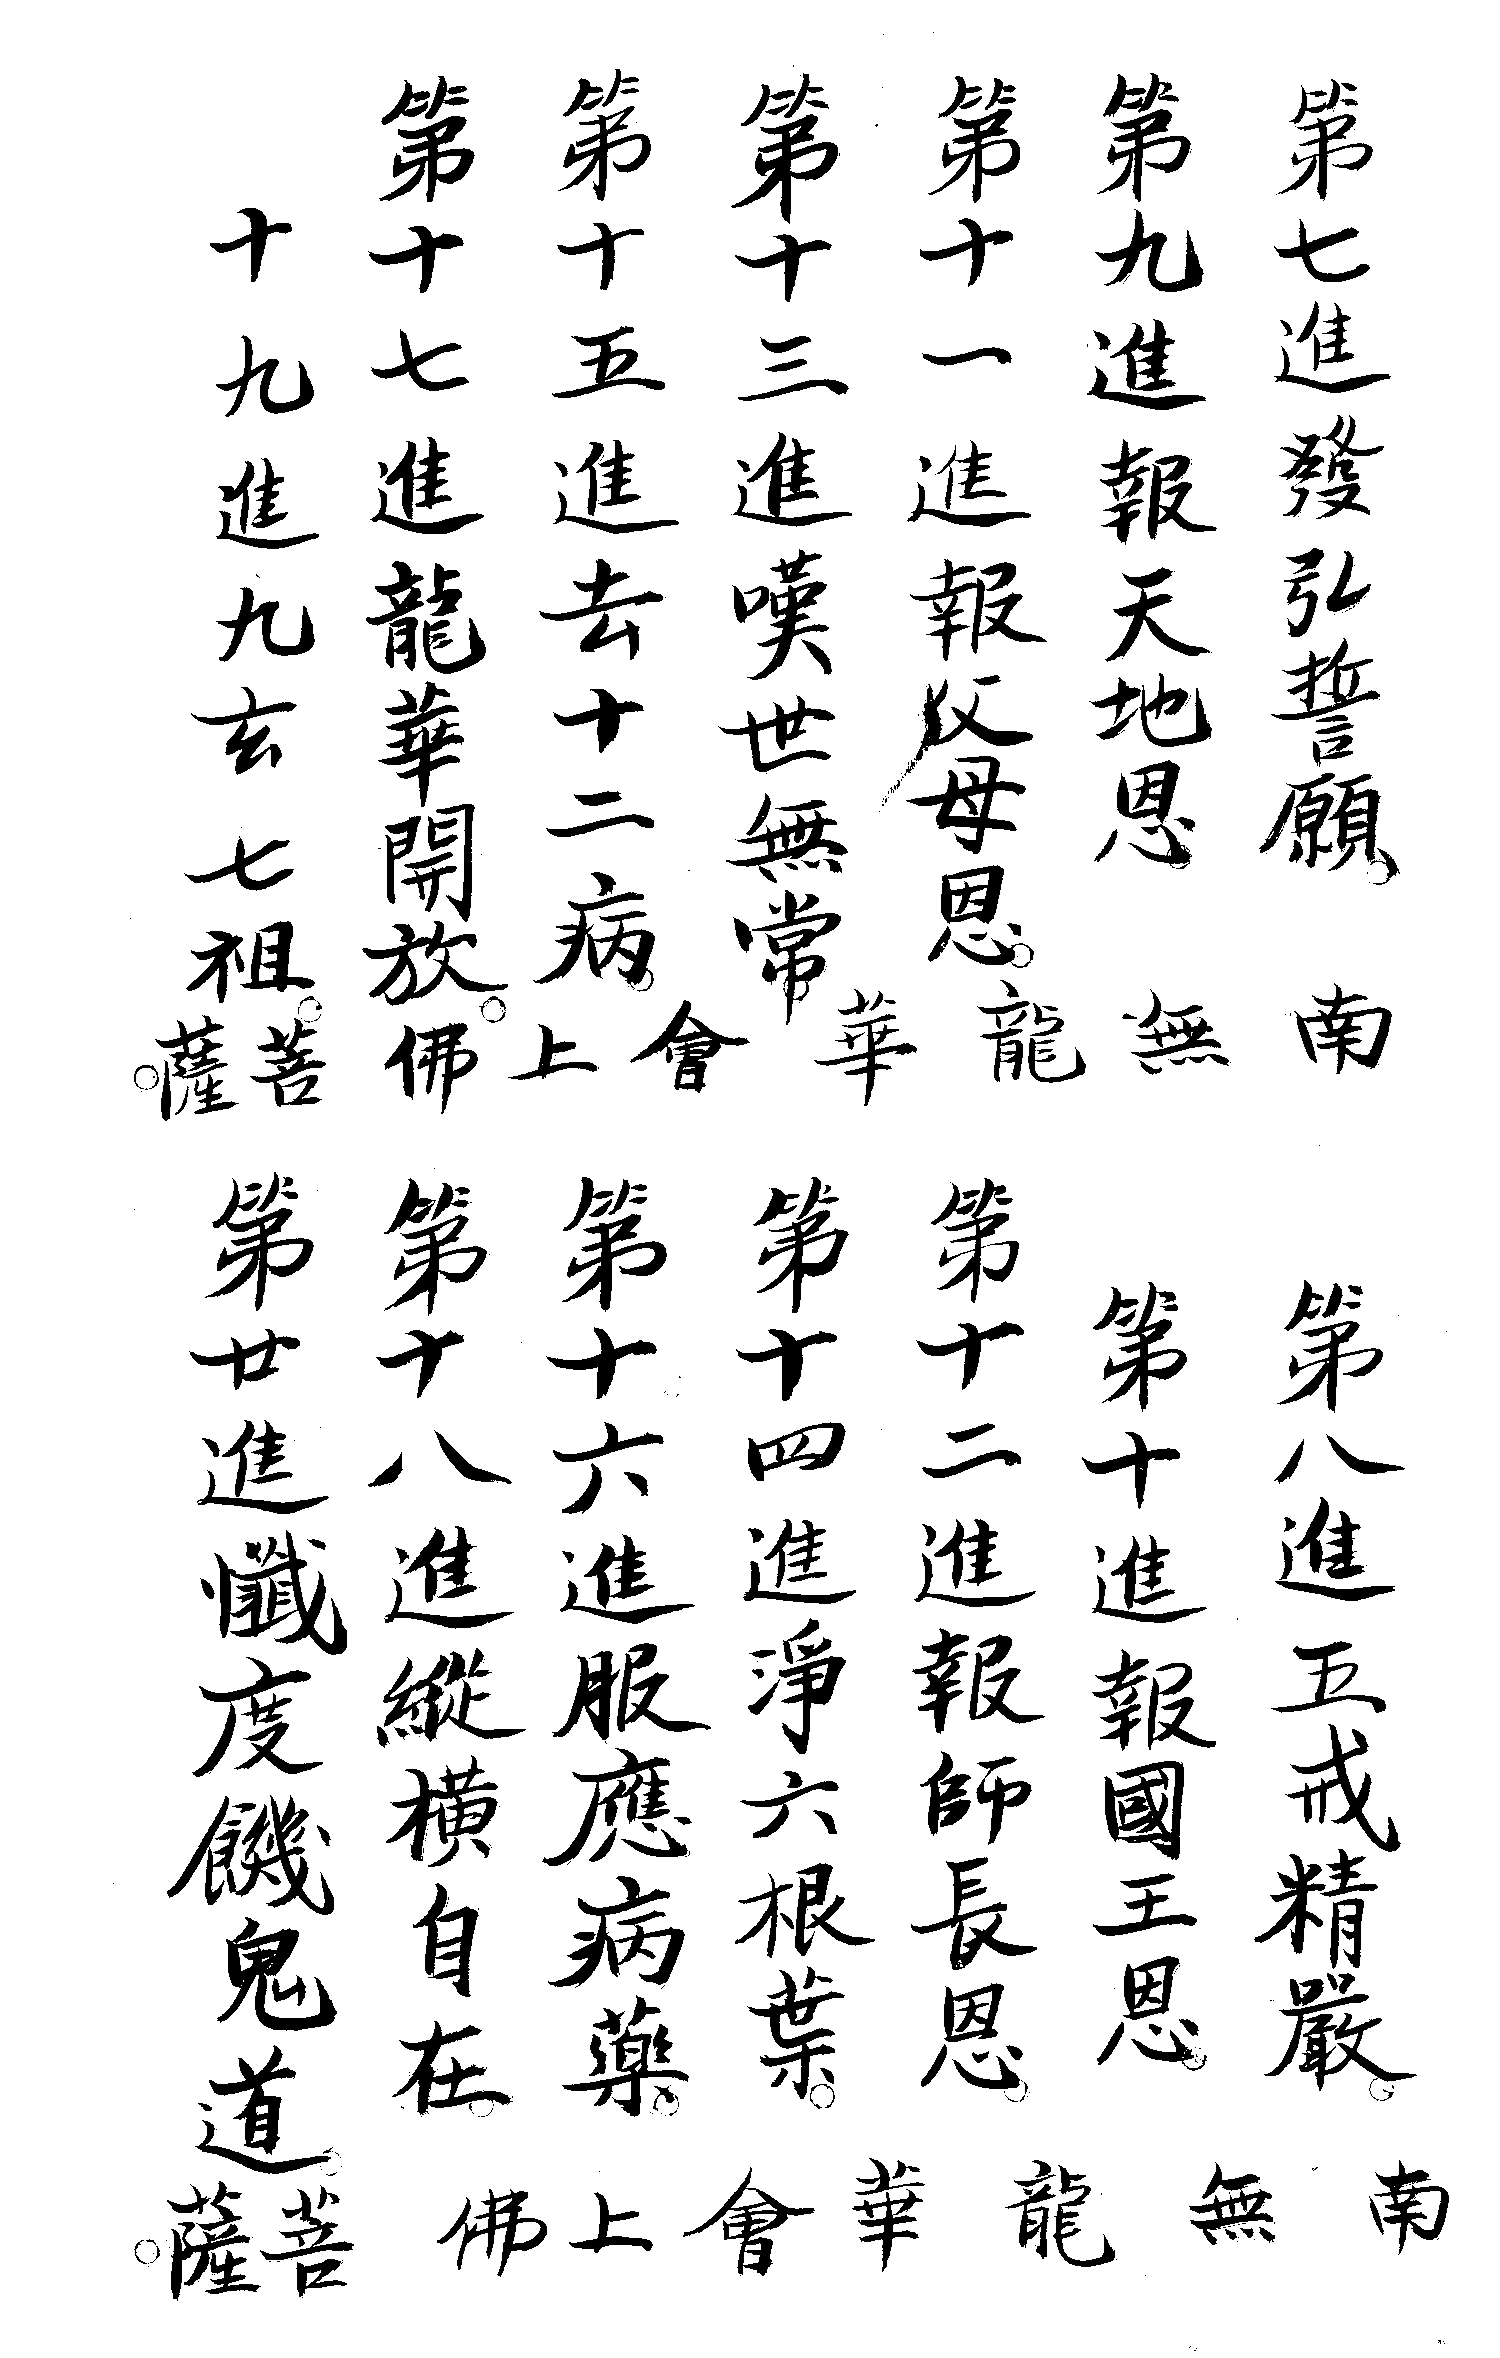 第七進發弘誓願。
第九進報天地恩。
第十一進報父母恩。
第十三進嘆世無常。
第十五進去十二病。
第十七進龍華開放。
十九進九玄七祖。
南無龍華會上佛菩薩。
第八進五戒精嚴。
第十進報國王恩。
第十二進報師長恩。
第十四進淨六根葉。
第十六進服應病藥。
第十八進縱橫自在。
第廿進懺度饑鬼道。
南無龍華會上佛菩薩。